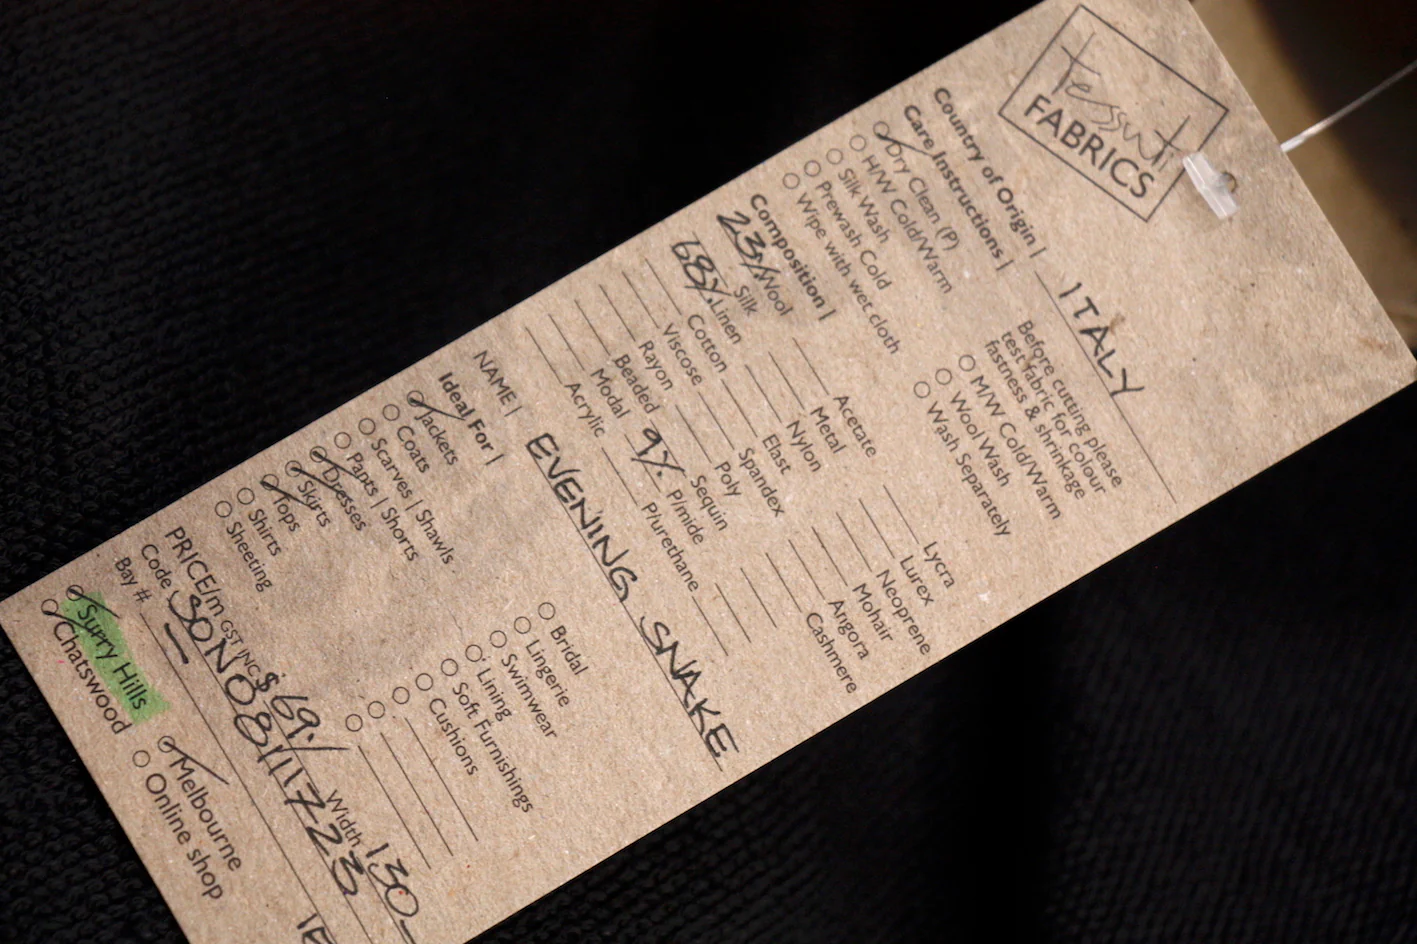 tessuti
FABRICS
Country of Origin | ITALY
Care Instructions |
Before cutting please
test fabric for colour
fastness & shrinkage
Dry Clean (P)
H/W Cold/Warm
Silk Wash
Prewash Cold
Wipe with wet cloth
M/W Cold/Warm
Wool Wash
Wash Separately
Composition |
23% Wool
Silk
68% Linen
Cotton
Viscose
Rayon
Beaded
Modal
Acrylic
Acetate
Metal
Nylon
Elast
Spandex
Poly
Sequin
9% P/mide
P/urethane
Lycra
Lurex
Neoprene
Mohair
Angora
Cashmere
NAME | EVENING SNAKE
Ideal For |
Jackets
Coats
Scarves | Shawls
Pants | Shorts
Dresses
Skirts
Tops
Shirts
Sheeting
Bridal
Lingerie
Swimwear
Lining
Soft Furnishings
Cushions
PRICE/m GST INC $ 69./ Width 130
Code SON081117-23
Bay # —
Surry Hills
Chatswood
Melbourne
Online shop